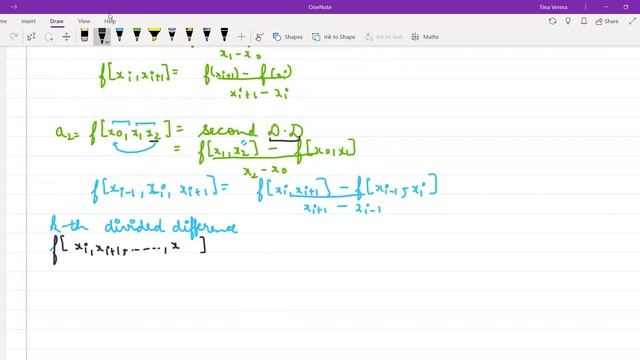 OneNote
Tina Verma
Home Insert Draw View Help
Shapes Ink to Shape Ink to Text Math
x₁ - x₀
f[xi, xi+1] = f(xi+1) - f(xi)
xi+1 - xi
a₂ = f[x0, x1 x2] = second D.D
= f[x1, x2] - f[x0, x1]
x2 - x0
f[xi-1, xi, xi+1] = f[xi, xi+1] - f[xi-1, xi]
xi+1 - xi-1
k-th divided difference
f[ xi, xi+1, ......, x ]